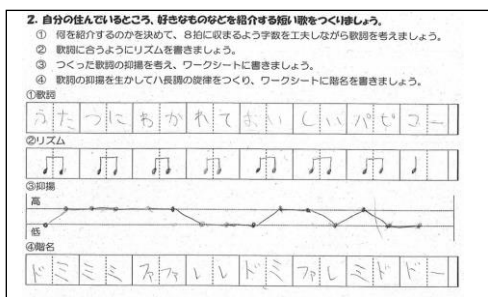 2. 自分の住んでいるところ、好きなものなどを紹介する短い歌をつくりましょう。
① 何を紹介するのかを決めて、8拍に収まるよう字数を工夫しながら歌詞を考えましょう。
② 歌詞に合うようにリズムを書きましょう。
③ つくった歌詞の抑揚を考え、ワークシートに書きましょう。
④ 歌詞の抑揚を生かしてハ長調の旋律をつくり、ワークシートに階名を書きましょう。
①歌詞
ふたつにわかれておいしいパピコー
②リズム
③抑揚
高
低
④階名
ドミミミファファレレドミファレミドドー